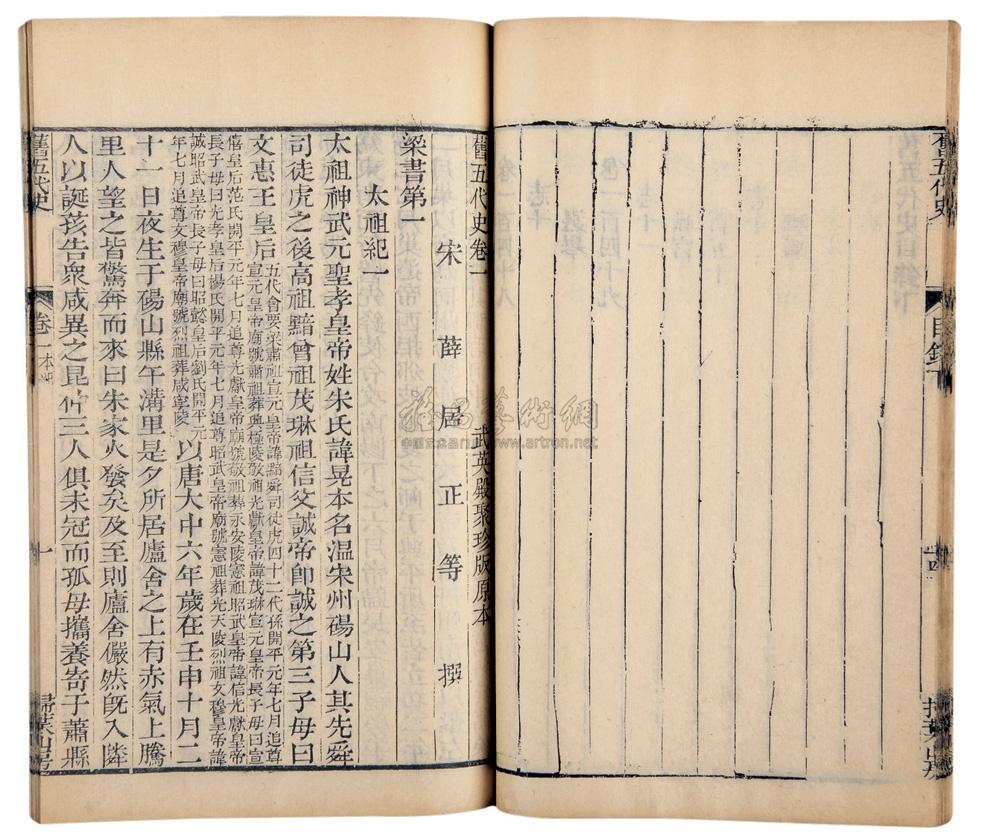 舊五代史
目錄下
十四
掃葉山房
舊五代史卷一
武英殿聚珍版原本
宋薛居正等撰
梁書第一
太祖紀一
太祖神武元聖孝皇帝姓朱氏諱晃本名温宋州碭山人其先舜
司徒虎之後高祖黯曾祖茂琳祖信父誠帝即誠之第三子母曰
文惠王皇后
五代會要梁肅祖宣元皇帝諱黯舜司徒虎四十二代孫開平元年七月追尊
宣元皇帝廟號肅祖葬興極陵敬祖光獻皇帝諱茂琳宣元皇帝長子母曰宣
僖皇后范氏開平元年七月追尊光獻皇帝廟號敬祖葬永安陵憲祖昭武皇帝諱信光獻皇帝
長子母曰光孝皇后楊氏開平元年七月追尊昭武皇帝廟號憲祖葬光天陵烈祖文穆皇帝諱
誠昭武皇帝長子母曰昭懿皇后劉氏開平元
年七月追尊文穆皇帝廟號烈祖葬咸寧陵
以唐大中六年歲在壬申十月二
十一日夜生于碭山縣午溝里是夕所居廬舍之上有赤氣上騰
里人望之皆驚奔而來曰朱家火發矣及至則廬舍儼然既入隣
人以誕孩告衆咸異之昆仲三人俱未冠而孤母攜養寄于蕭縣
舊五代史
卷一
一
掃葉山房
雅昌藝術網
www.artron.net